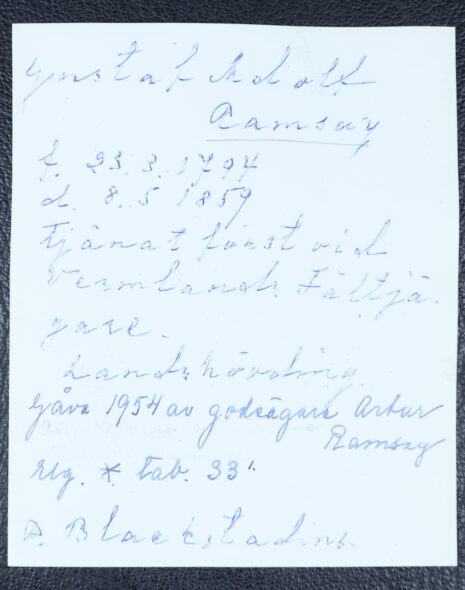 Gustaf Adolf
Ramsay
f. 23.3.1794
d. 8.5 1859
Tjänat först vid
Vermlands Fältjä-
gare.
Landshövding
Gåva 1954 av godsägare Artur
Ramsay
tab. 33
Blackstadius